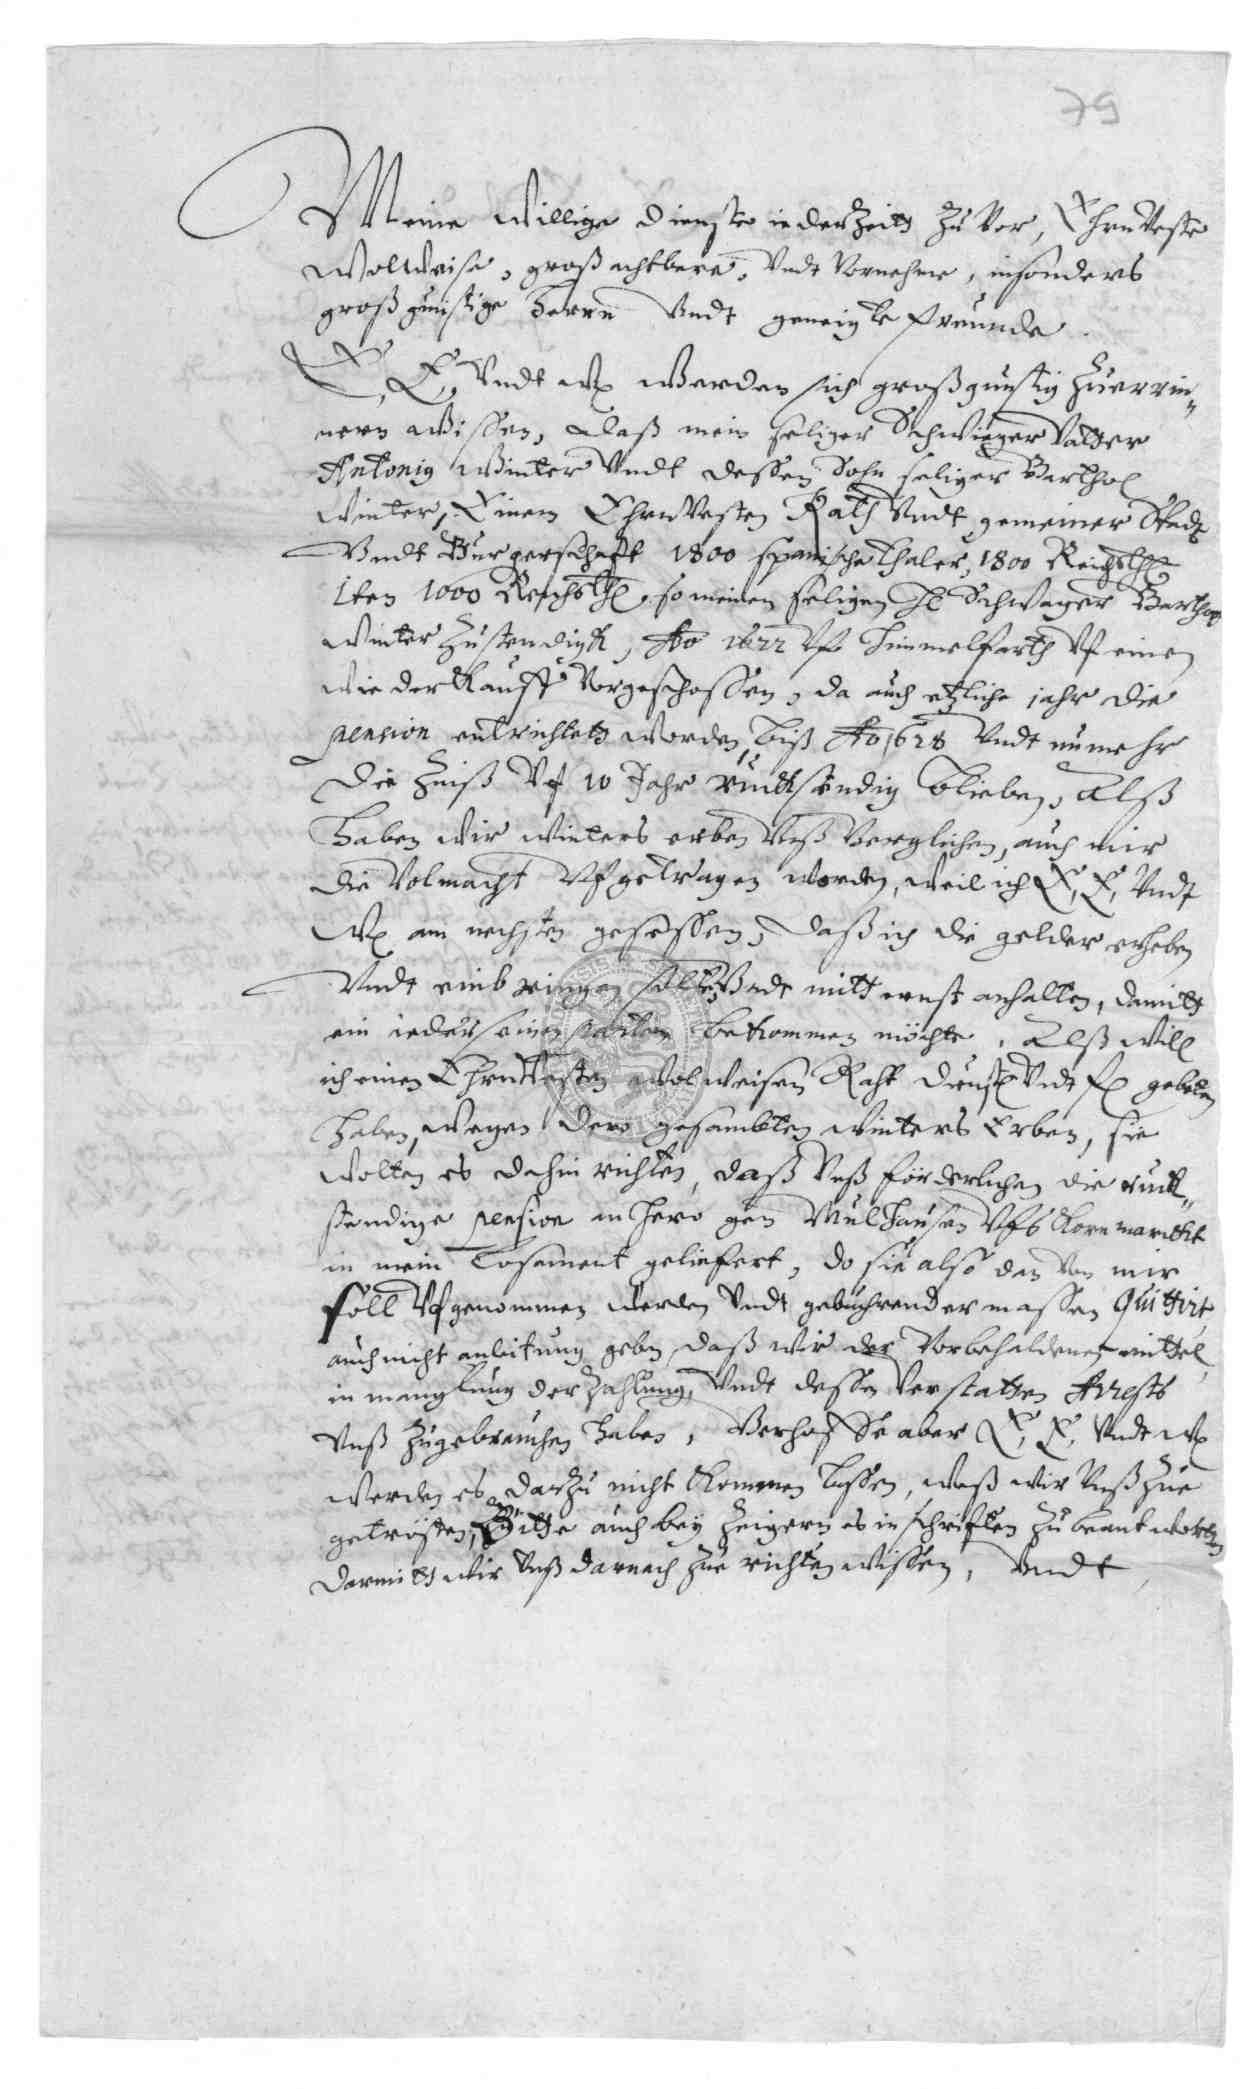 79
Meine willige dienste iederzeitt zu vor, Ehrnveste
wolweise, großachtbare, vndt vornehme, insonders
großgünstige Herrn vndt geneigte freunde.
E. E. vndt W. werden sich großgünstig zuerrin„
nern wissen, daß mein seliger Schwieger Vatter
Antonig Winter vndt dessen Sohn seliger Barthol
Winter, Einem Ehrnvesten Rath vndt gemeiner Stadt
vndt Burgerschafft 1800 spanische thaler, 1800 Reichsthl
Iten 1000 Reichsthl, so meinen seligen H Schwager Barthol
Winter zustendigk, Ao 1622 vf Himmelfarth vf einen
wiederkauff vorgeschossen, da auch etzliche jahr die
pension entrichtett worden, biß Ao 1628 vndt nunmehr
die Zinß vf 10 Jahr rückstendig blieben, Alß
haben wir Winters erben vnß verglichen, auch mir
die volmacht vfgetragen worden, weil ich E. E. vndt
W. am nechsten gesessen, daß ich die gelder erheben
vndt einbringen solte, vndt mitt ernst anhalten, damitt
ein ieder seinen bekommen möchte. Alß will
ich einen Ehrnvesten wolweisen Raht dienstl vndt fl gebeten
haben, wegen dero gesambten Winters Erben, sie
wolten es dahin richten, daß vnß förderlichen die ruck„
stendige pension anhero gen Mulhausen vfs Kornmarckt
in mein Losament geliefert, do sie also dan von mir
soll vfgenommen werden vndt gebuhrendermassen quittirt,
auch nicht anleitung geben, daß wir der vorbehaldenen mittel,
in manglung der Zahlung, vndt dessen verstatten Arrests
vnß zugebrauchen haben, Verhoffe aber E. E. vndt W.
werden es darzu nicht kommen lassen, weß wir vnß zue
getrösten, Bitte auch bey Zeigern es in schrifften zu beantworten
darmitt wir vnß darnach zue richten wissen, vndt